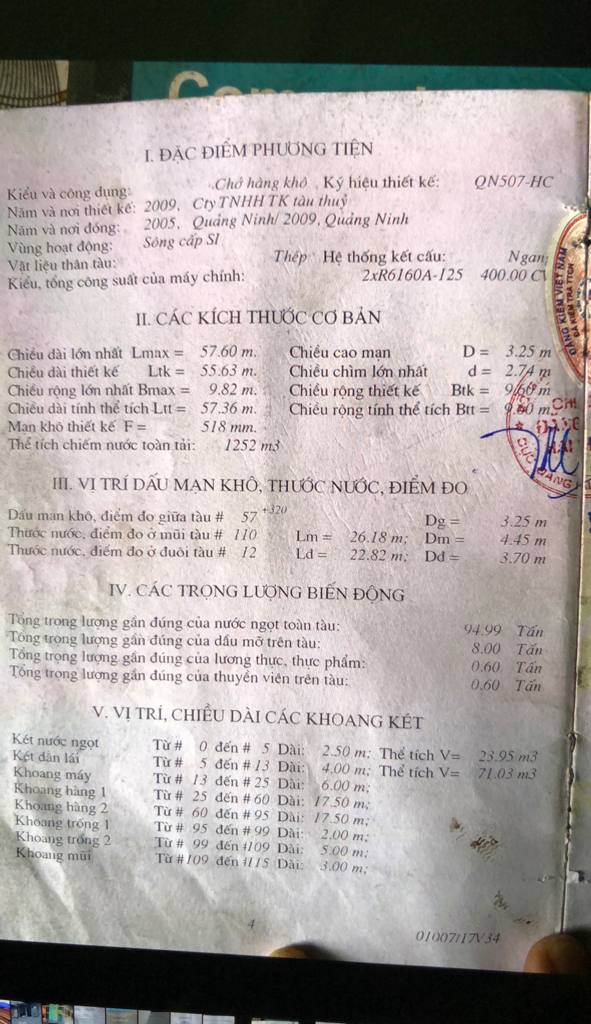 I. ĐẶC ĐIỂM PHƯƠNG TIỆN
Kiểu và công dụng: Chở hàng khô Ký hiệu thiết kế: QN507-HC
Năm và nơi thiết kế: 2009, Cty TNHH TK tàu thuỷ
Năm và nơi đóng: 2005, Quảng Ninh/ 2009, Quảng Ninh
Vùng hoạt động: Sông cấp SI
Vật liệu thân tàu: Thép Hệ thống kết cấu: Ngang
Kiểu, tổng công suất của máy chính: 2xR6160A-125 400.00 CV
II. CÁC KÍCH THƯỚC CƠ BẢN
Chiều dài lớn nhất Lmax = 57.60 m. Chiều cao mạn D = 3.25 m
Chiều dài thiết kế Ltk = 55.63 m. Chiều chìm lớn nhất d = 2.74 m
Chiều rộng lớn nhất Bmax = 9.82 m. Chiều rộng thiết kế Btk = 9.60 m
Chiều dài tính thể tích Ltt = 57.36 m. Chiều rộng tính thể tích Btt = 9.60 m.
Mạn khô thiết kế F = 518 mm.
Thể tích chiếm nước toàn tải: 1252 m3
III. VỊ TRÍ DẤU MẠN KHÔ, THƯỚC NƯỚC, ĐIỂM ĐO
Dấu mạn khô, điểm đo giữa tàu # 57 +320 Dg = 3.25 m
Thước nước, điểm đo ở mũi tàu # 110 Lm = 26.18 m; Dm = 4.45 m
Thước nước, điểm đo ở đuôi tàu # 12 Ld = 22.82 m; Dd = 3.70 m
IV. CÁC TRỌNG LƯỢNG BIẾN ĐỘNG
Tổng trọng lượng gần đúng của nước ngọt toàn tàu: 94.99 Tấn
Tổng trọng lượng gần đúng của dầu mỡ trên tàu: 8.00 Tấn
Tổng trọng lượng gần đúng của lương thực, thực phẩm: 0.60 Tấn
Tổng trọng lượng gần đúng của thuyền viên trên tàu: 0.60 Tấn
V. VỊ TRÍ, CHIỀU DÀI CÁC KHOANG KÉT
Két nước ngọt Từ # 0 đến # 5 Dài: 2.50 m; Thể tích V= 23.95 m3
Két dằn lái Từ # 5 đến # 13 Dài: 4.00 m; Thể tích V= 71.03 m3
Khoang máy Từ # 13 đến # 25 Dài: 6.00 m;
Khoang hàng 1 Từ # 25 đến # 60 Dài: 17.50 m;
Khoang hàng 2 Từ # 60 đến # 95 Dài: 17.50 m;
Khoang trống 1 Từ # 95 đến # 99 Dài: 2.00 m;
Khoang trống 2 Từ # 99 đến #109 Dài: 5.00 m;
Khoang mũi Từ #109 đến #115 Dài: 3.00 m;
4
01007/17V34
ĐĂNG KIỂM VIỆT NAM
ĐÃ KIỂM TRA TTCN
CHI
ĐĂNG
CỤC ĐĂNG